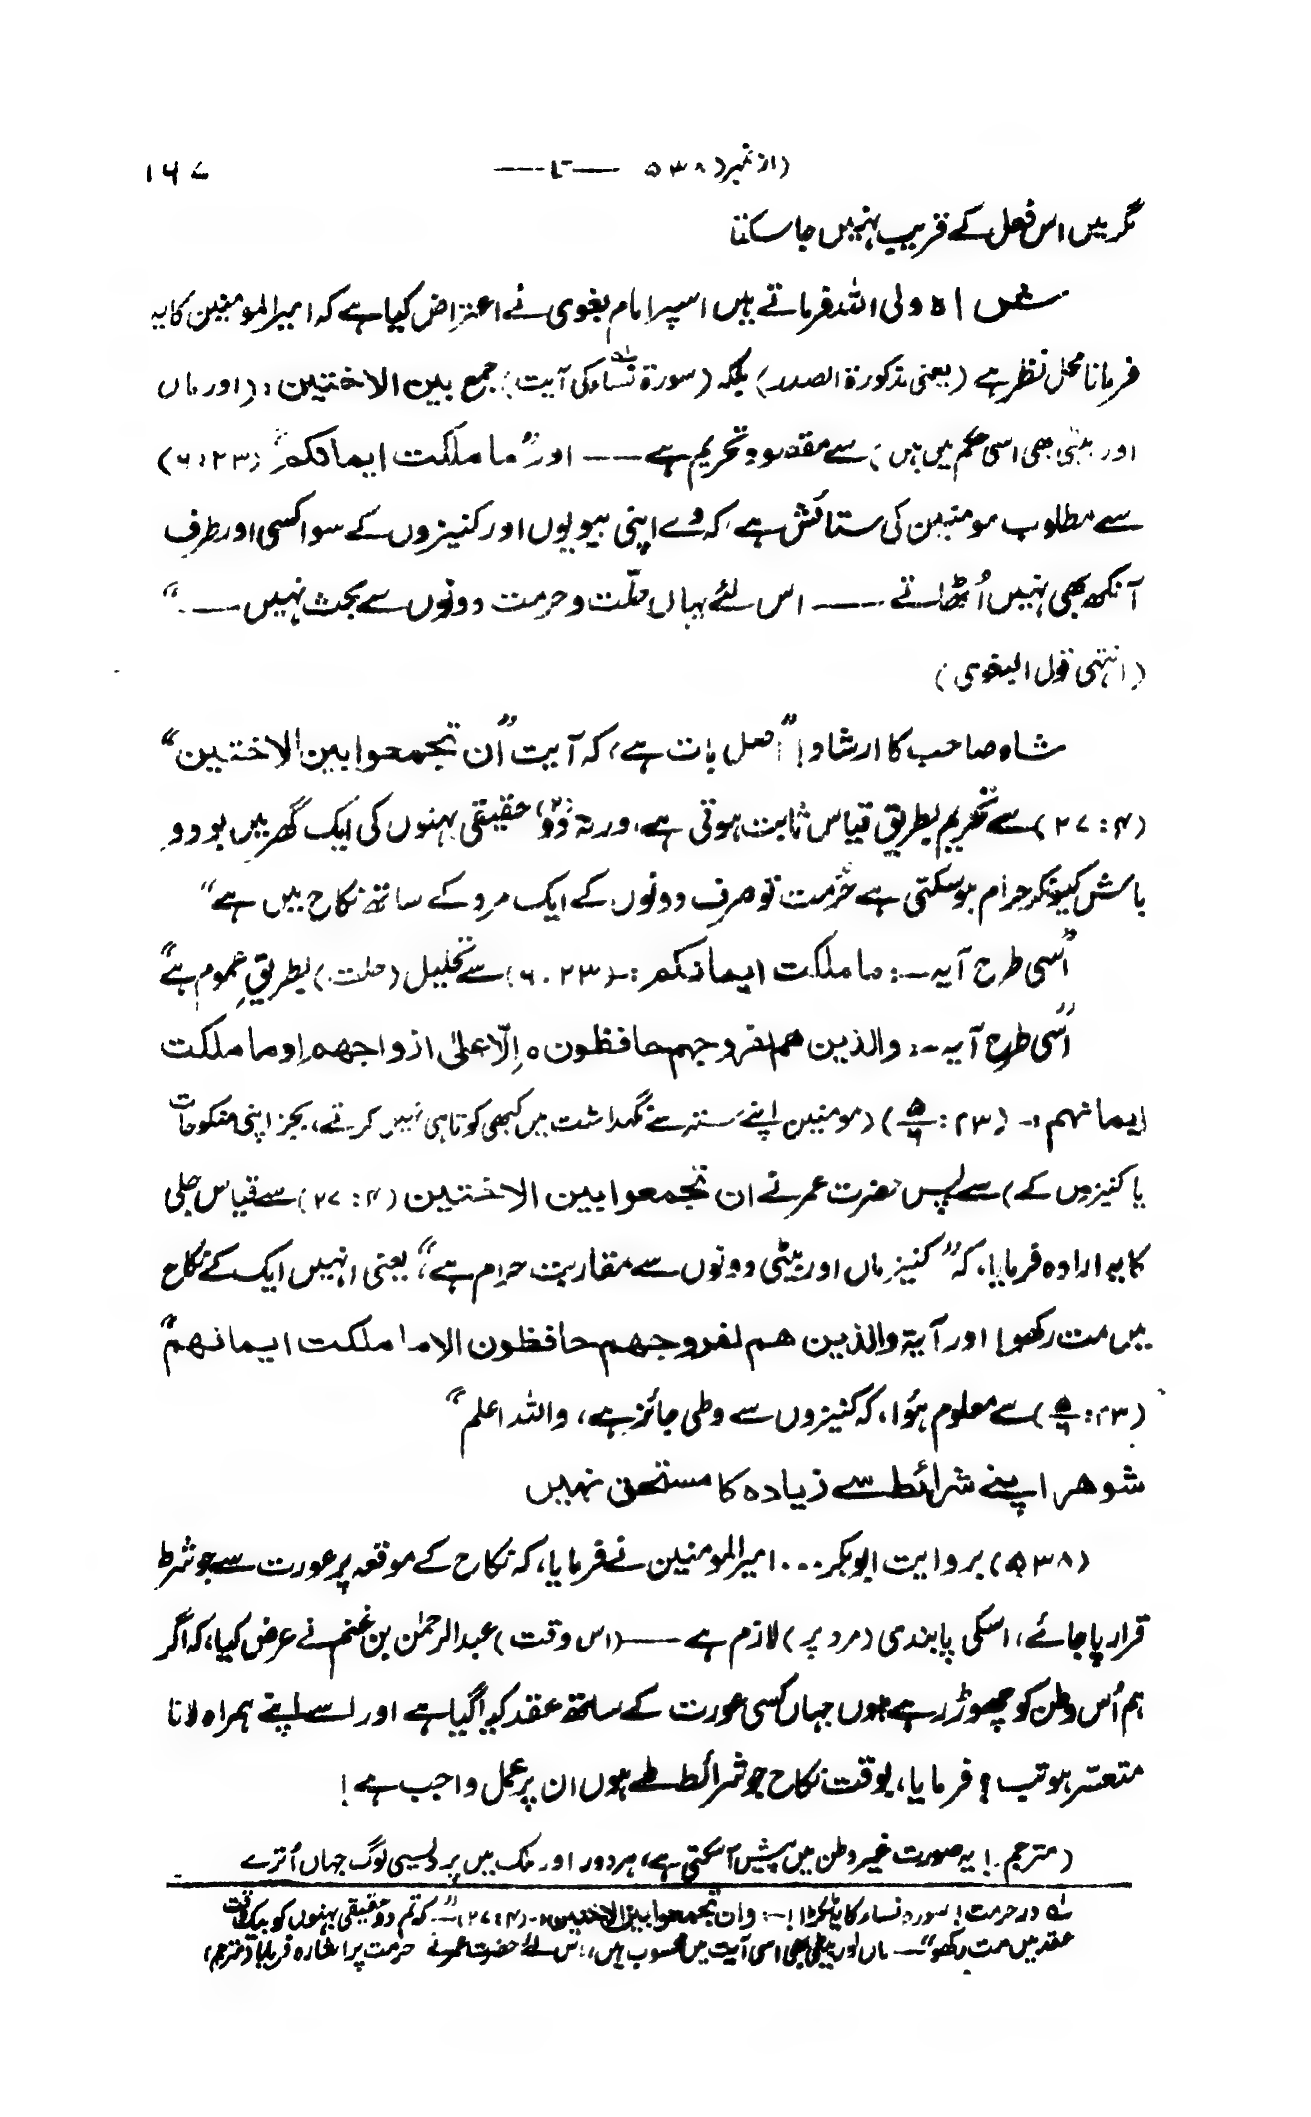 (از نمبر (۵۳۸ ——تا—— ۱۶۷
مگر میں اس فعل کے قریب نہیں جا سکتا
شاہ ولی اللہ فرماتے ہیں اسپر امام بغوی نے اعتراض کیا ہے کہ امیر المومنین کا یہ
فرمانا محل نظر ہے (یعنی مذکورۃ الصدر) بلکہ (سورۃ نساء کی آیت) جمع بین الاختین: (اور ماں
اور بیٹی بھی اسی حکم میں ہیں) سے مقصود تحریم ہے —— اور "ما ملکت ایمانکم" (۶:۲۳)
سے مطلوب مومنین کی ستائش ہے کہ وے اپنی بیویوں اور کنیزوں کے سوا کسی اور طرف
آنکھ بھی نہیں اُٹھاتے —— اس لئے یہاں حلّت و حرمت دونوں سے بحث نہیں ——"
(انتہی قول البغوی)
شاہ صاحب کا ارشاد! "اصل بات ہے، کہ آیت "اُن تجمعوا بین الاختین"
(۲۷:۴) سے تحریم بطریق قیاس ثابت ہوتی ہے، ورنہ دو (۲) حقیقی بہنوں کی ایک گھر میں بود و
باش کیونکر حرام ہو سکتی ہے حُرمت تو صرف دونوں کے ایک مرد کے ساتھ نکاح میں ہے"
"اُسی طرح آیہ —: ما ملکت ایمانکم :— (۶۰۲۳) سے تحلیل (حلت) بطریقِ عموم ہے"
"اُسی طرح آیہ —: والذین ھم لفروجہم حافظون ہ اِلّا علیٰ ازواجھم او ما ملکت
ایمانہم :- (۲۳: ۵/۶) (مومنین اپنے ستر سے نگہداشت میں کبھی کوتاہی نہیں کرتے، بجز اپنی منکوحات
یا کنیزوں کے) سے پس حضرت عمر نے ان تجمعوا بین الاختین (۲۷:۴) سے قیاس جلی
کا یہ ارادہ فرمایا، کہ "کنیز ماں اور بیٹی دونوں سے مقاربت حرام ہے"، یعنی انہیں ایک کے نکاح
میں مت رکھو! اور آیۃ والذین ھم لفروجھم حافظون الا ما ملکت ایمانھم"
(۲۳: ۵/۶) سے معلوم ہؤا، کہ کنیزوں سے وطی جائز ہے، واللہ اعلم"
شوھر اپنے شرائط سے زیادہ کا مستحق نہیں
(۵۳۸) بروایت ابوبکر ... امیر المومنین نے فرمایا، کہ نکاح کے موقعہ پر عورت سے جو شرط
قرار پا جائے، اسکی پابندی (مرد پر) لازم ہے —— (اس وقت) عبد الرحمٰن بن غنم نے عرض کیا، کہ اگر
ہم اُس وطن کو چھوڑ رہے ہوں جہاں کسی عورت کے ساتھ عقد کیا گیا ہے اور اسے اپنے ہمراہ لانا
متعسّر ہو تب؟ فرمایا، بوقت نکاح جو شرائط طے ہوں ان پر عمل واجب ہے!
(مترجم! یہ صورت غیر وطن میں پیش آ سکتی ہے، ہر دور اور ملک میں پردیسی لوگ جہاں اُترے
لہ در حرمت! سورہ نساء کا یہ ٹکڑا! —: وان تجمعوا بین الاختین :- (۲۷:۴) — "کہ تم دو حقیقی بہنوں کو بیک وقت
عقد میں مت رکھو" — ماں اور بیٹی بھی اسی آیت میں محسوب ہیں، اس لئے حضرت عمر نے حرمت پر اشارہ فرمایا (مترجم)